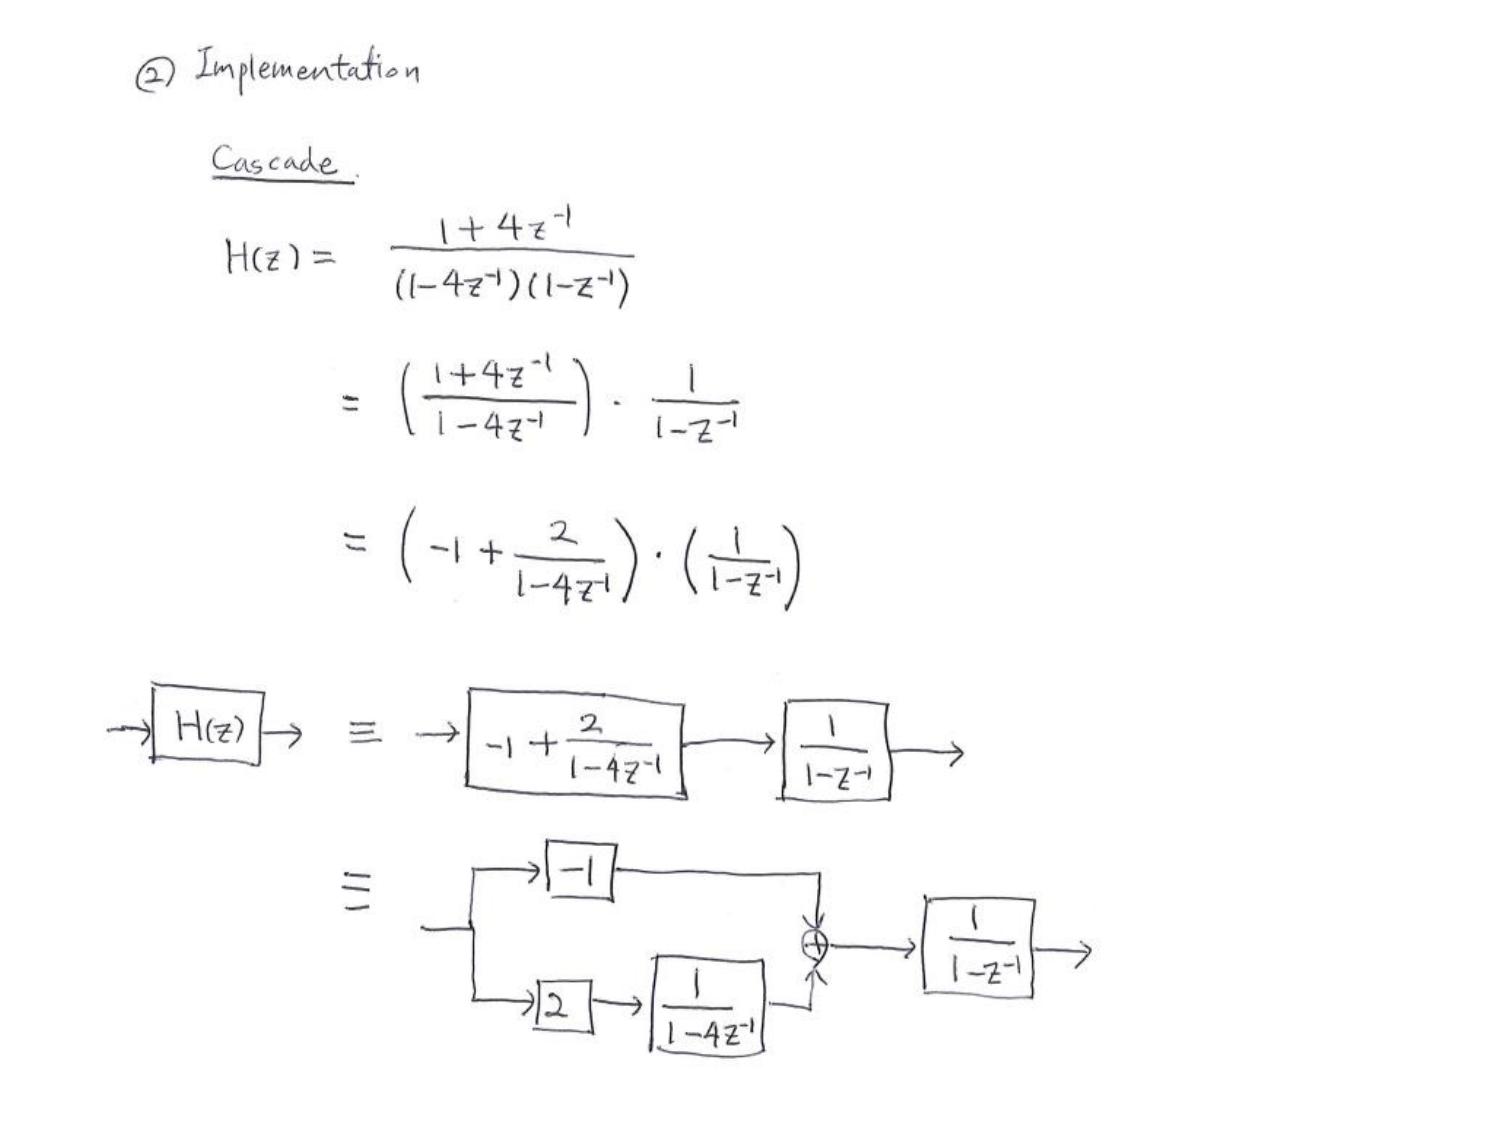 ② Implementation
Cascade.
H(z) = (1 + 4z⁻¹) / ((1-4z⁻¹)(1-z⁻¹))
= ((1+4z⁻¹) / (1-4z⁻¹)) · 1 / (1-z⁻¹)
= (-1 + 2 / (1-4z⁻¹)) · (1 / (1-z⁻¹))
→ H(z) → ≡ → -1 + 2 / (1-4z⁻¹) → 1 / (1-z⁻¹) →
≡
-1
+
1 / (1-z⁻¹)
2
1 / (1-4z⁻¹)